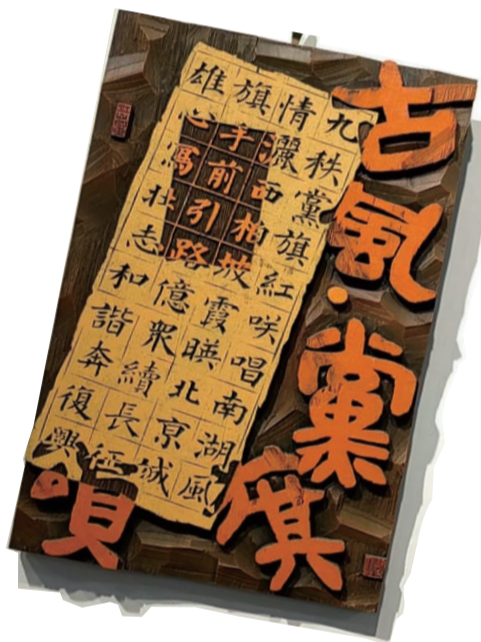 古風·黨旗
頌
九秩黨旗紅咲唱南湖風
情灑西柏坡霞暎北京城
旗手前引路億衆續長征
雄心寫壯志和諧奔復興